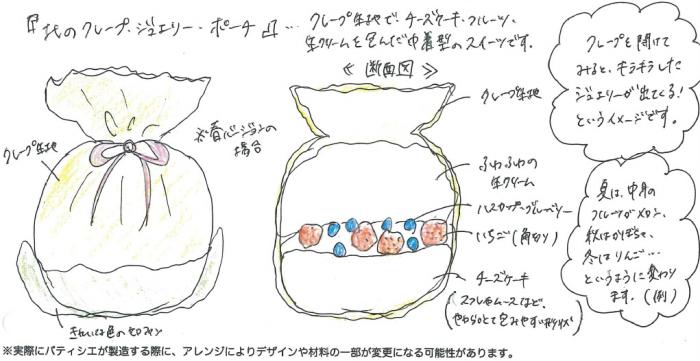 『北のクレープ・ジュエリー・ポーチ』…
クレープ生地で、チーズケーキ・フルーツ、
生クリームを包んだ巾着型のスイーツです。
≪断面図≫
クレープ生地
春バージョンの
場合
クレープ生地
ふわふわの
生クリーム
ハスカップ・ブルーベリー
いちご(角切り)
チーズケーキ
スフレやムースなど、
きれいな色のセロファン
クレープを開けて
みると、キラキラした
ジュエリーが出てくる!
というイメージです。
夏は、中身の
フルーツがメロン、
秋はかぼちゃ、
冬はりんご…
というように変わり
ます。(例)
※実際にパティシエが製造する際に、アレンジによりデザインや材料の一部が変更になる可能性があります。